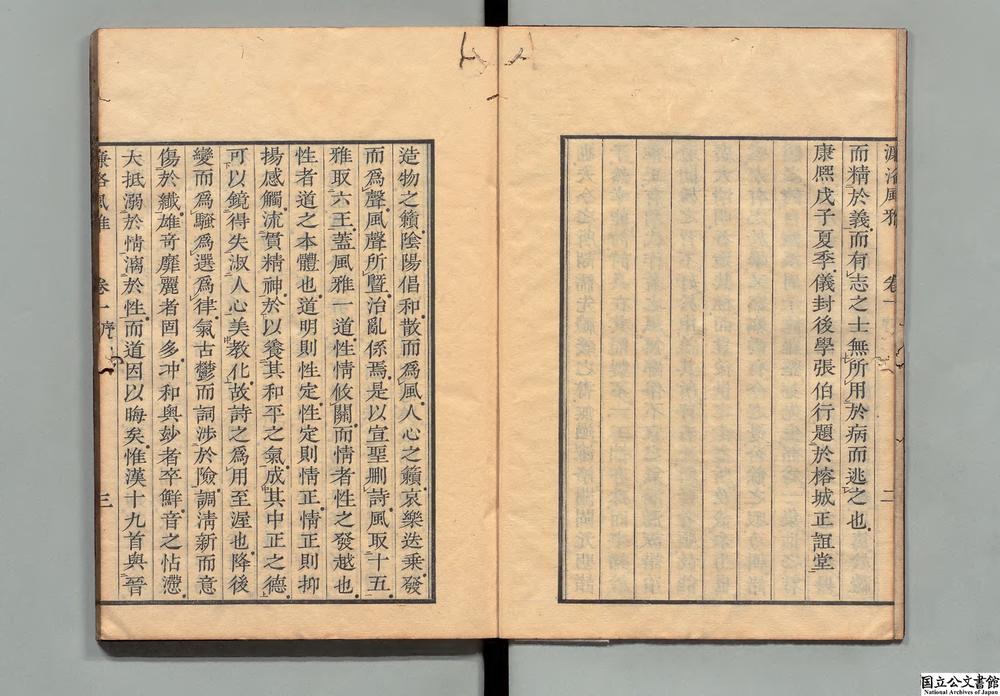 濂洛風雅 卷一序 二
而精於義而有志之士無所用於病而逃之也
康熙戊子夏季儀封後學張伯行題於榕城正誼堂
造物之籟陰陽倡和散而爲風人心之籟哀樂迭乘發
而爲聲風聲所曁治亂係焉是以宣聖刪詩風取十五
雅取六王蓋風雅一道性情攸關而情者性之發越也
性者道之本體也道明則性定性定則情正情正則抑
揚感觸流貫精神於以養其和平之氣成其中正之德
可以鏡得失淑人心美教化故詩之爲用至渥也降後
變而爲騷爲選爲律氣古鬱而詞涉於險調淸新而意
傷於纖雄奇靡麗者固多冲和與妙者卒鮮音之怗懘
大抵溺於情漓於性而道因以晦矣惟漢十九首與晉
濂洛風雅 卷一序 三
国立公文書館
National Archives of Japan